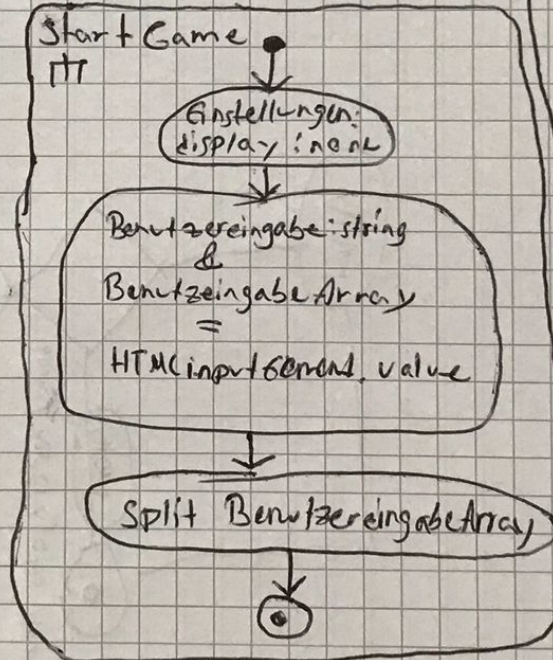 Start Game
Einstellungen:
display: none
Benutzereingabe: string
&
BenutzeingabeArray
=
HTMLinputElement.value
Split BenutzereingabeArray